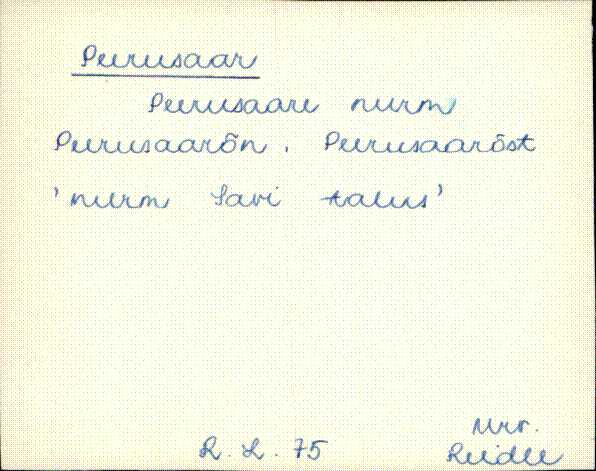 Peerusaar
Peerusaare nurm
Peerusaarõn, Peerusaarõst
'nurm Savi talus'
Urv.
R. L. 75